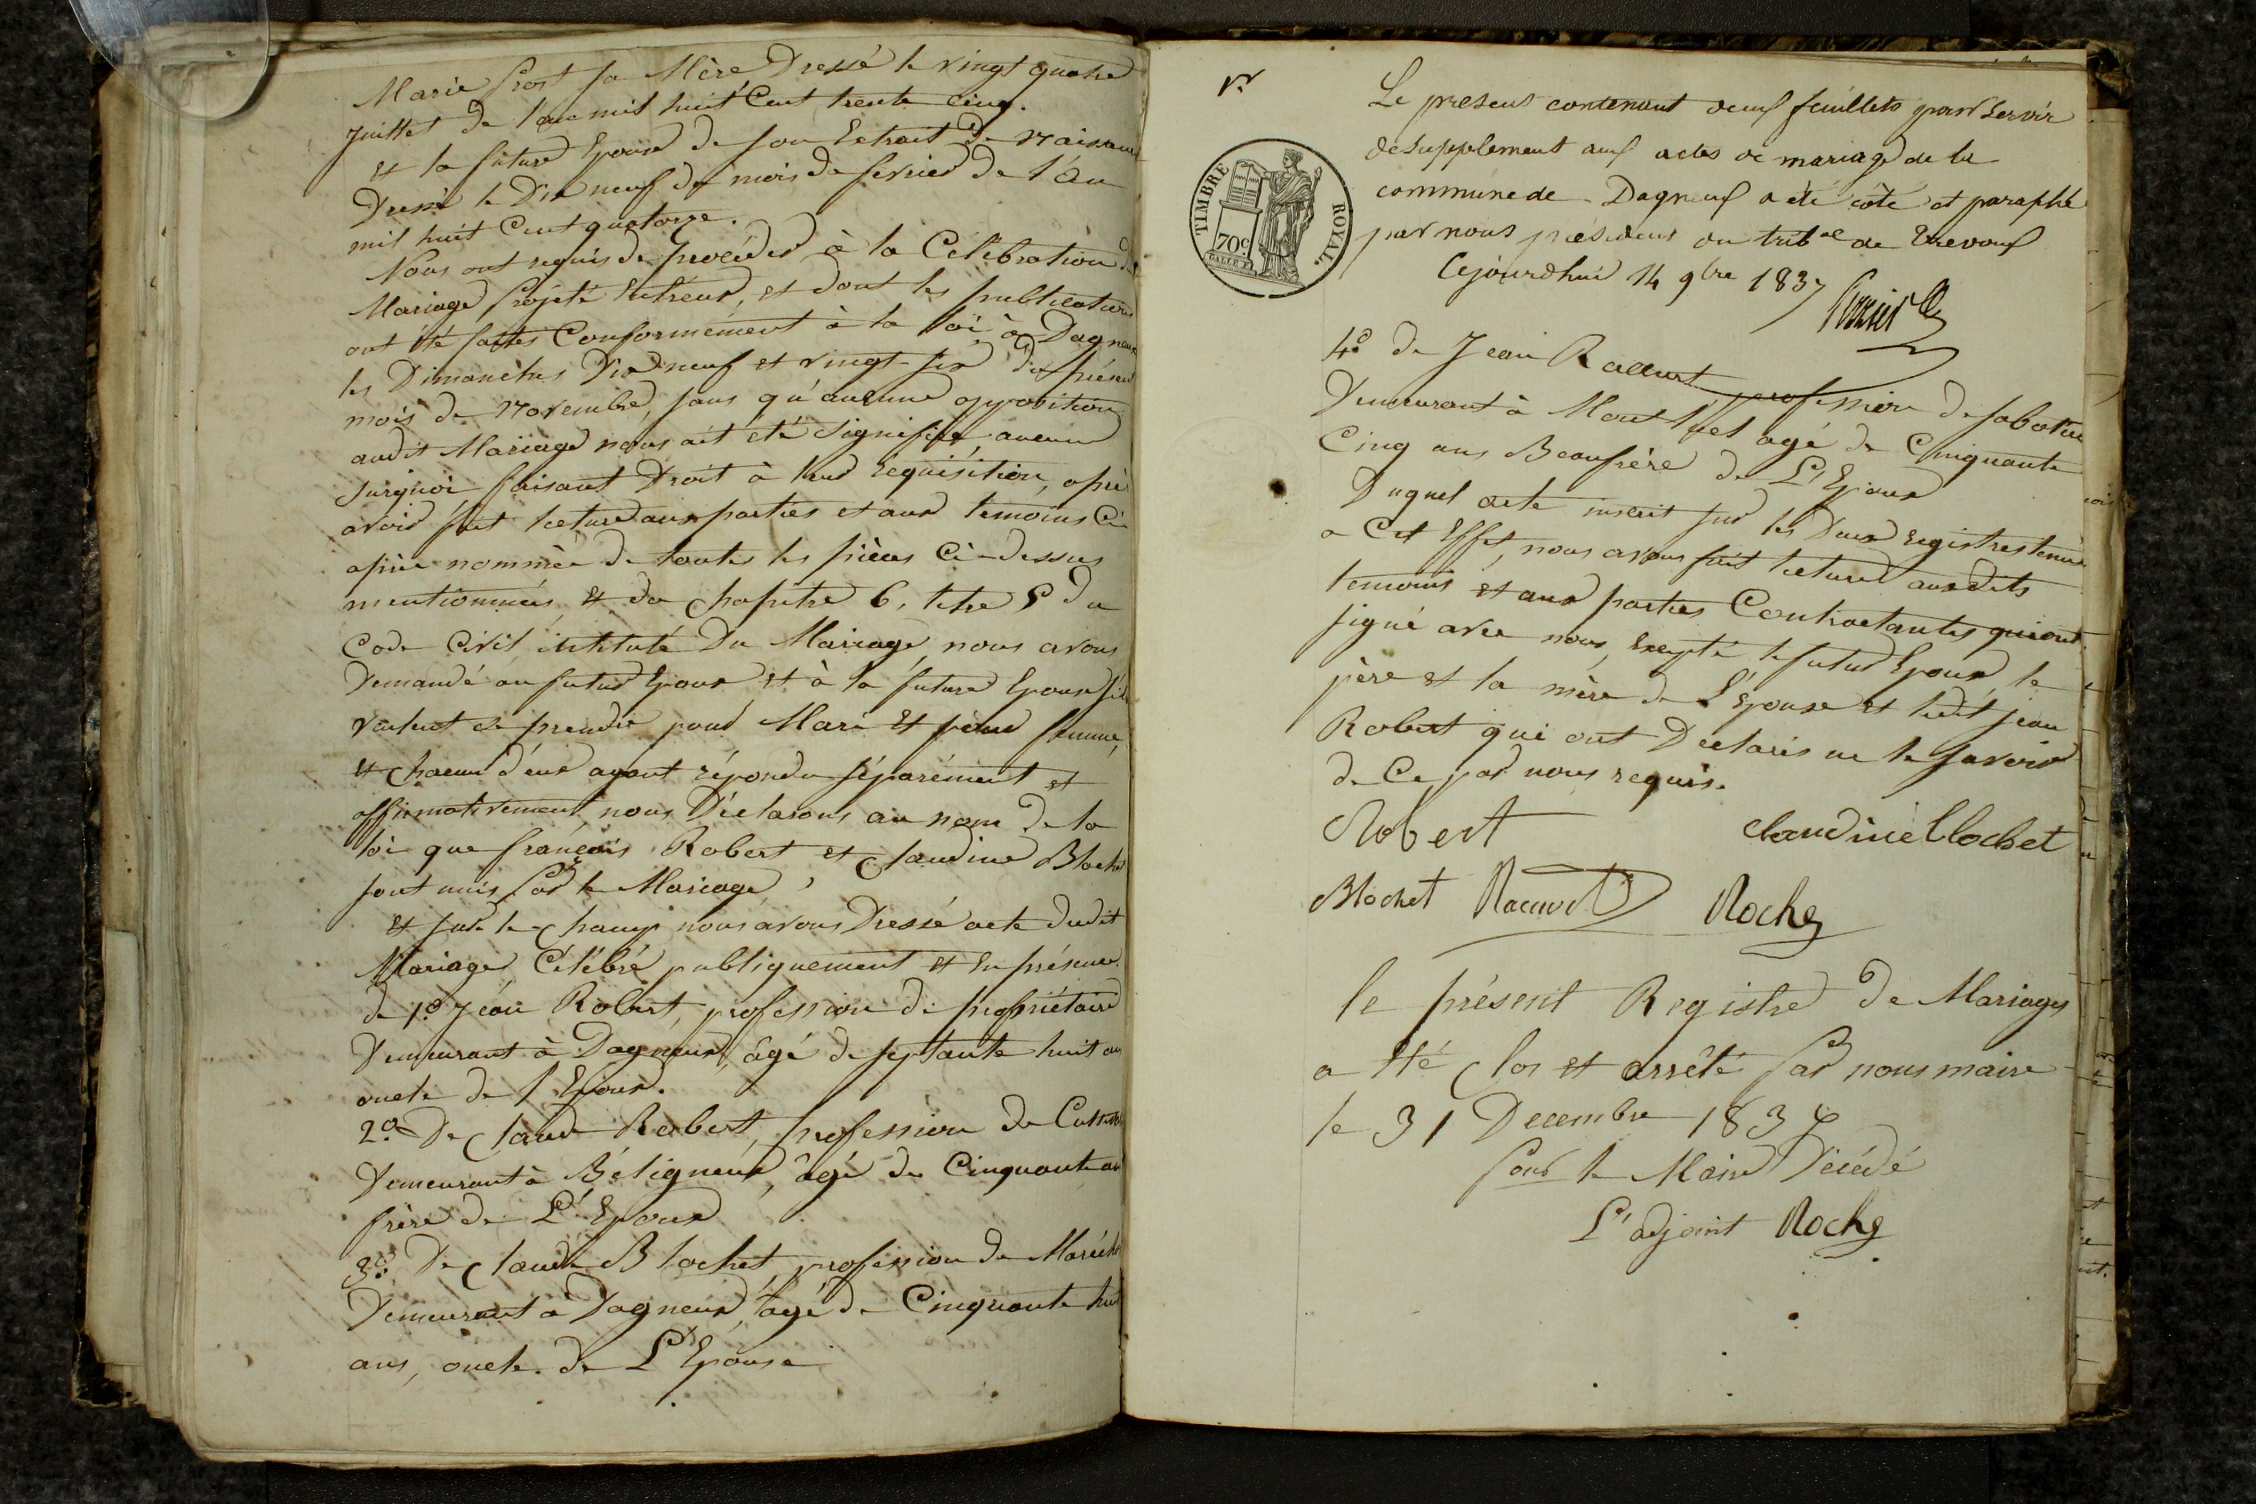 Marie Prost sa Mère Dressé le vingt quatre
juillet de l'an mil huit Cent trente cinq.
et la future Epouse de son Extrait de Naissance
Dressé le Dix neuf du mois de fevrier de l'An
mil huit Cent quatorze.
Nous ont requis de procéder à la Célébration du
Mariage projeté Entr'eux, et dont les publications
ont été faites Conformément à la loi, à Dagneux
les Dimanches Dix neuf et vingt-six du présent
mois de Novembre, sans qu'aucune opposition
audit Mariage nous ait eté signifiée, aucun
surquoi faisant Droit à leur requisition, après
avoir fait lecture aux parties et aux temoins Ci
après nommés de toutes les pièces Ci-dessus
mentionnées, et du Chapitre 6, titre 5 du
Code Civil intitulé Du Mariage, nous avons
Demandé au futur Epoux et à la future Epouse s'ils
veulent se prendre pour Mari et pour femme,
et Chacun d'eux ayant répondu séparément et
affirmativement, nous Déclarons au nom de la
loi que françois Robert et Claudine Blochet
sont unis par le Mariage,
et sur le Champ nous avons Dressé acte dudit
Mariage Célébré publiquement et en présence
de 1º Jean Robert, profession de propriétaire
Demeurant à Dagneux, âgé de septante huit ans
oncle de l'Epoux.
2º De Claude Robert, profession de
Demeurant à Béligneux, âgé de Cinquante ans
frère de L'Epoux
3º De Claude Blochet, profession de Maréchal
Demeurant à Dagneux, âgé de Cinquante huit
ans, oncle de L'Epouse
Le present contenant deux feuillets pour servir
de supplement aux actes de mariage de la
commune de Dagneux a été côté et paraphé
par nous président du tribal de Trevoux
Cejourdhui 14 9bre 1837
TIMBRE ROYAL
70c
4º de Jean Racurt profession de sabotier
Demeurant à Montluel agé de Cinquante
Cinq ans Beaufrère de L'Epoux
Duquel acte inscrit sur les Deux registres tenus
a Cet Effet, nous avons fait lecture auxdits
temoins et aux parties Contractantes qui ont
signé avec nous, Excepté le futur Epoux, le
père et la mère de L'Epouse et ledit jean
Robert qui ont Declarés ne le savoir
de Ce par nous requis.
Robert claudine Blochet
Blochet Racurt Roche
le présent Registre de Mariages
a Eté Clos et arrêté par nous maire
le 31 Decembre 1837
pour le Maire Décédé
L'adjoint Roche